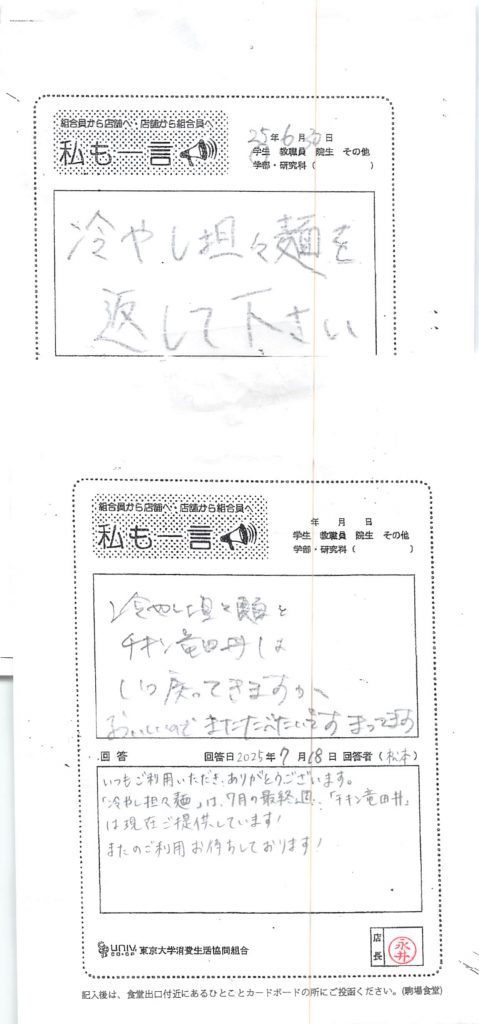 組合員から店舗へ・店舗から組合員へ
私も一言
25年6月30日
学生 教職員 院生 その他
学部・研究科（　　　）
冷やし担々麺を
返して下さい
組合員から店舗へ・店舗から組合員へ
私も一言
年 月 日
学生 教職員 院生 その他
学部・研究科（　　　）
冷やし担々麺と
チキン竜田丼は
いつ戻ってきますか
おいしいので またたべたいです まってます
回答 回答日2025年7月18日 回答者（松本）
いつもご利用いただき、ありがとうございます。
「冷やし担々麺」は、7月の最終週、「チキン竜田丼」
は現在ご提供しています!
またのご利用お待ちしております!
UNIV. CO-OP 東京大学消費生活協同組合
店長
永井
記入後は、食堂出口付近にあるひとことカードボードの所にご投函ください。(駒場食堂)